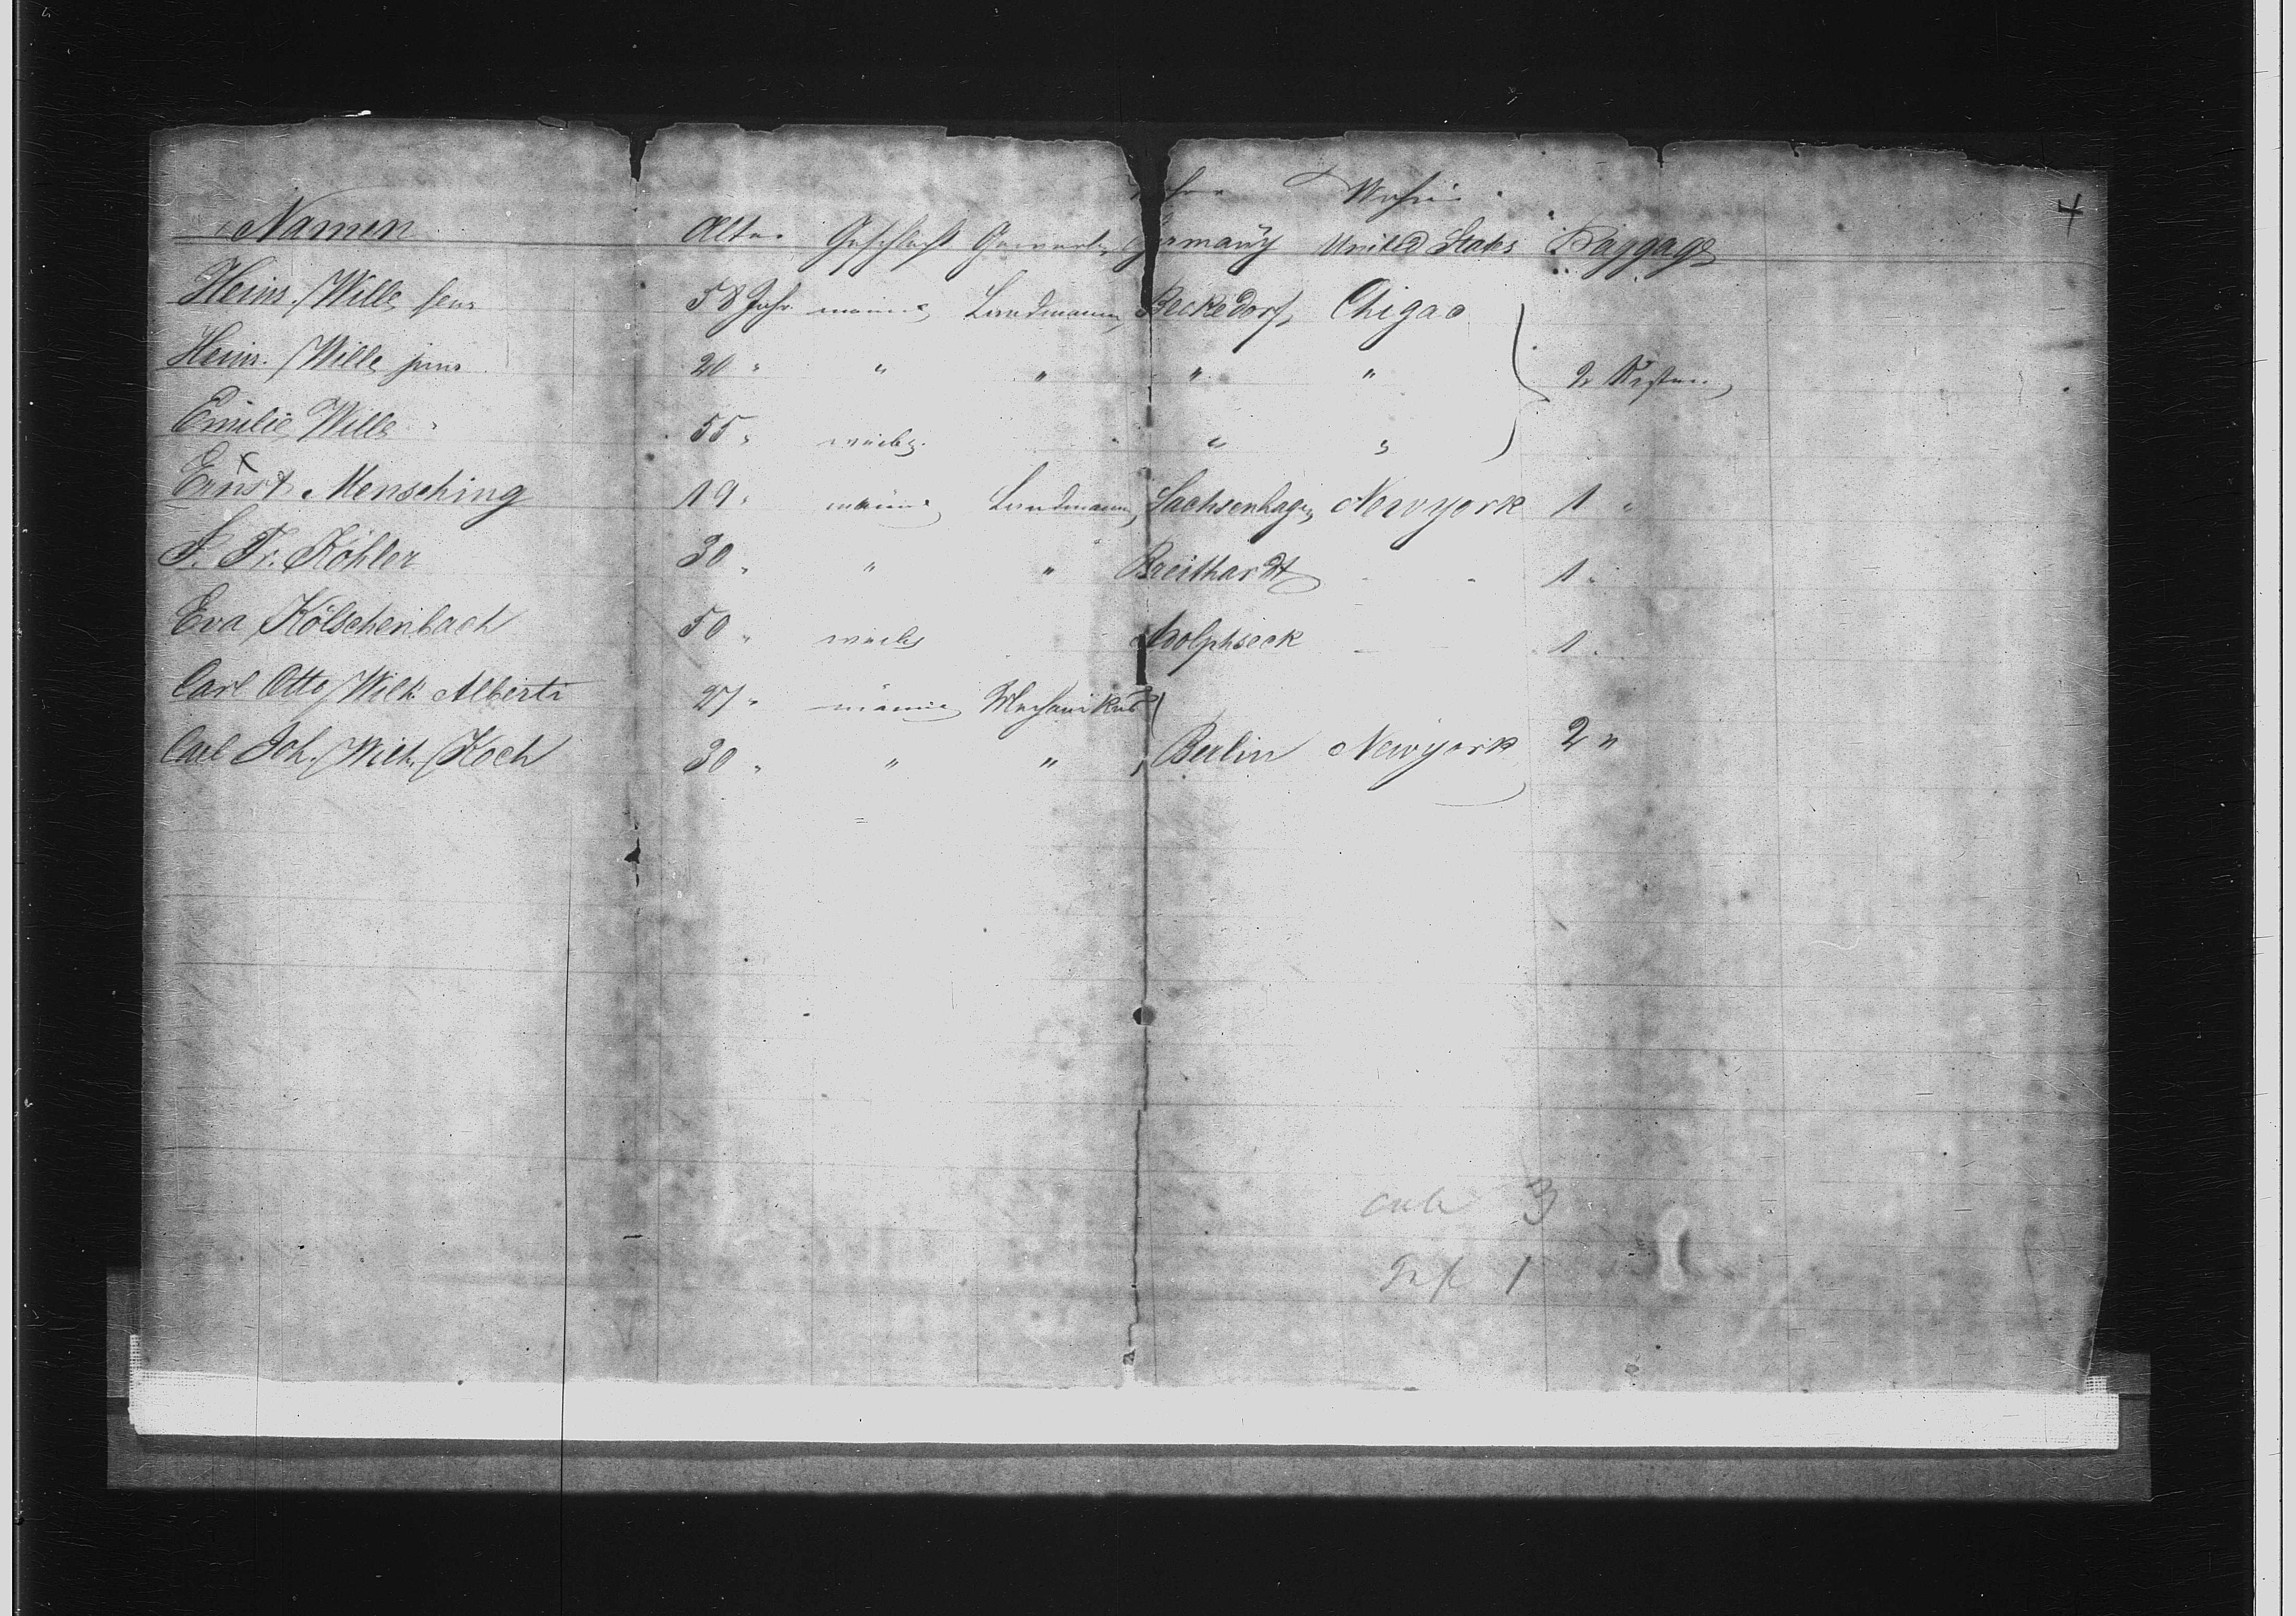 4
Wohin
Namen Alter Geschlecht Gewerbe Germany United States Baggage
Heinr. Wille senr 58 Jahr männl Landmann Beckedorf Chigao
Heinr. Wille junr 20 " " " " " 2 Kisten
Emilie Wille 55 " weibl. " "
x
Ernst Mensching 19 " männl Landmann Sachsenhagen Newyork 1 "
Fr. Köhler 30 " " " Breithardt 1 "
Eva Kölschenbach 50 " weibl Adolphseck 1 "
Carl Otto Wilh. Alberti 27 " männl Mechanikus
Carl Joh. Wilh. Koch 30 " " " Berlin Newyork 2 "
3
1